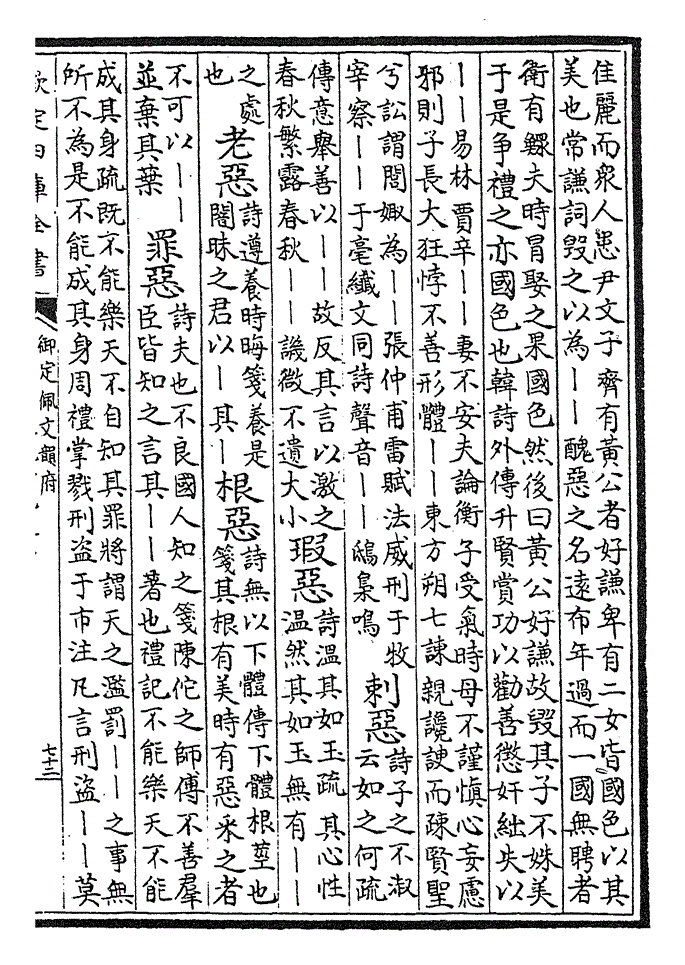 佳麗而衆人恚尹文子齊有黃公者好謙卑有二女皆國色以其
美也常謙詞毀之以為——醜惡之名遠布年過而一國無聘者
衛有鰥夫時冒娶之果國色然後曰黃公好謙故毀其子不姝美
于是爭禮之亦國色也韓詩外傳升賢賞功以勸善懲奸絀失以
——易林賈辛——妻不安夫論衡子受氣時母不謹慎心妄慮
邪則子長大狂悖不善形體——東方朔七諫親讒諛而疎賢聖
兮訟謂閭娵為——張仲甫雷賦法威刑于牧
宰察——于毫纖文同詩聲音——鴟梟鳴
刺惡
詩子之不淑
云如之何疏
傳意舉善以——故反其言以激之
春秋繁露春秋——譏微不遺大小
瑕惡
詩溫其如玉疏其心性
溫然其如玉無有——
之處
也
老惡
詩遵養時晦箋養是
闇昧之君以—其—
根惡
詩無以下體傳下體根莖也
箋其根有美時有惡采之者
不可以——
並棄其葉
罪惡
詩夫也不良國人知之箋陳佗之師傅不善羣
臣皆知之言其——著也禮記不能樂天不能
成其身疏既不能樂天不自知其罪將謂天之濫罰——之事無
所不為是不能成其身周禮掌戮刑盜于市注凡言刑盜——莫
欽定四庫全書
御定佩文韻府
七十三